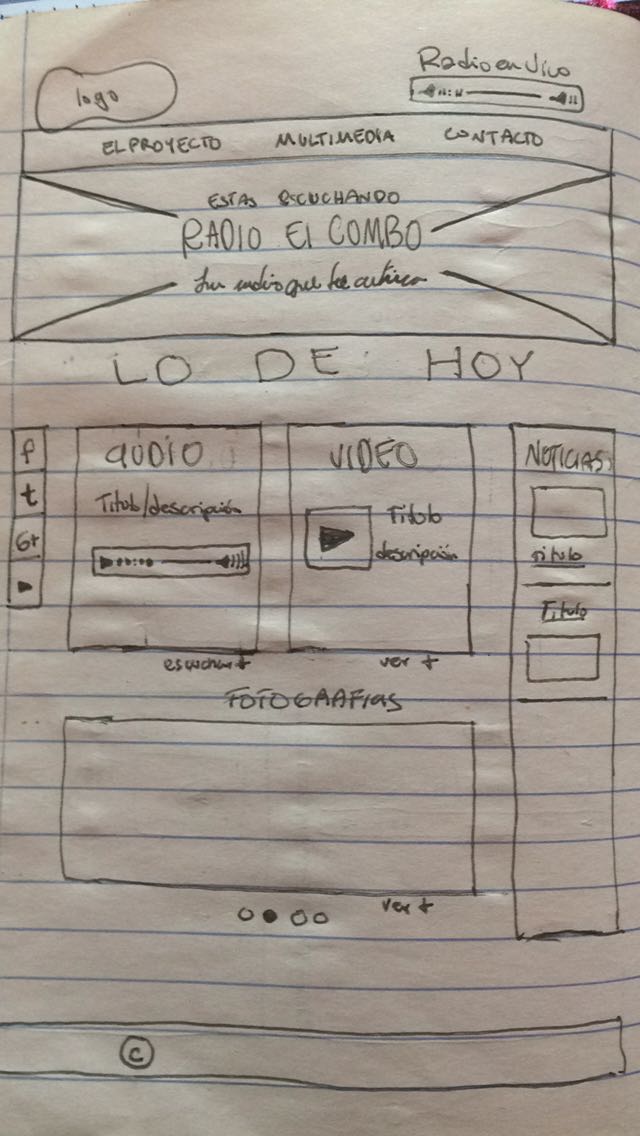 logo
Radio en vivo
EL PROYECTO MULTIMEDIA CONTACTO
ESTAS ESCUCHANDO
RADIO El COMBO
radio que te
LO DE HOY
f
t
G+
AUDIO
Titulo/descripción
escuchar +
VIDEO
Titulo
descripción
ver +
NOTICIAS
titulo
Titulo
FOTOGRAFIAS
ver +
©